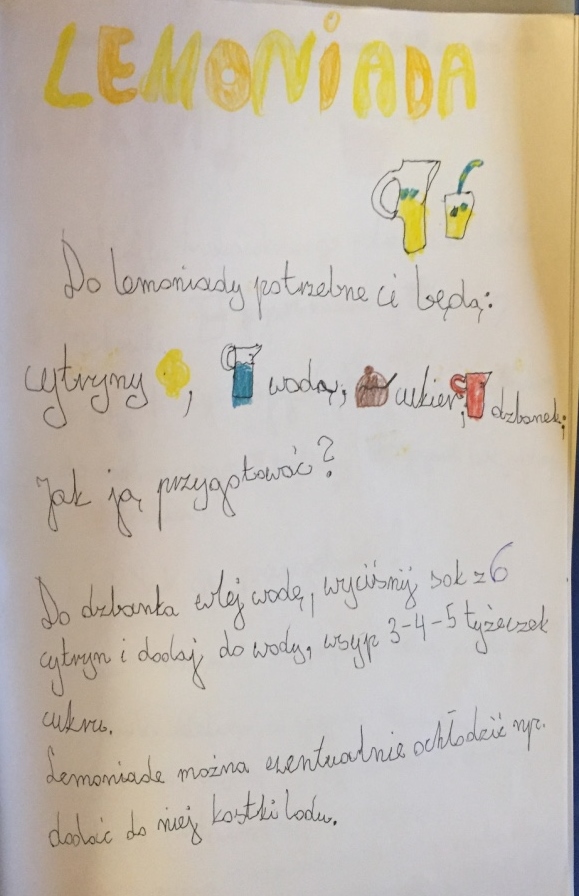 LEMONiADA
Do lemoniady potrzebne ci będą:
cytryny, wodą, cukier, dzbanek,
Jak ją przygotować?
Do dzbanka wlej wodę, wyciśnij sok z 6
cytryn i dodaj do wody, wsyp 3-4-5 łyżeczek
cukru.
Lemoniade można ewentualnie ochłodzić np.
dodać do niej kostki lodu.